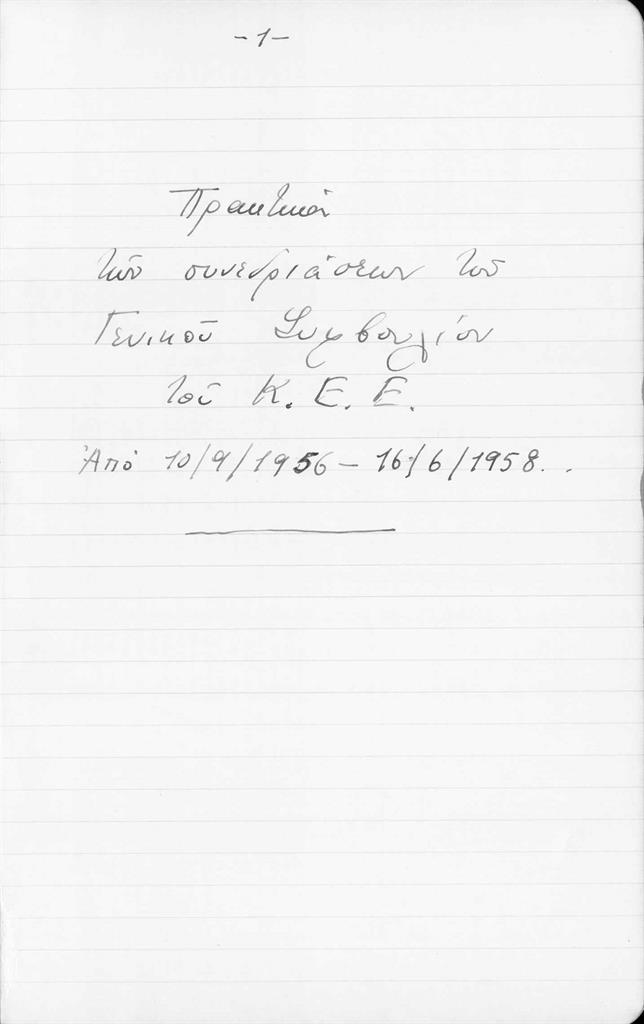 -1-
Πρακτικὰ
τῶν συνεδριάσεων τοῦ
Γενικοῦ Συμβουλίου
τοῦ Κ. Ε. Ε.
Ἀπό 10/9/1956 – 16/6/1958.